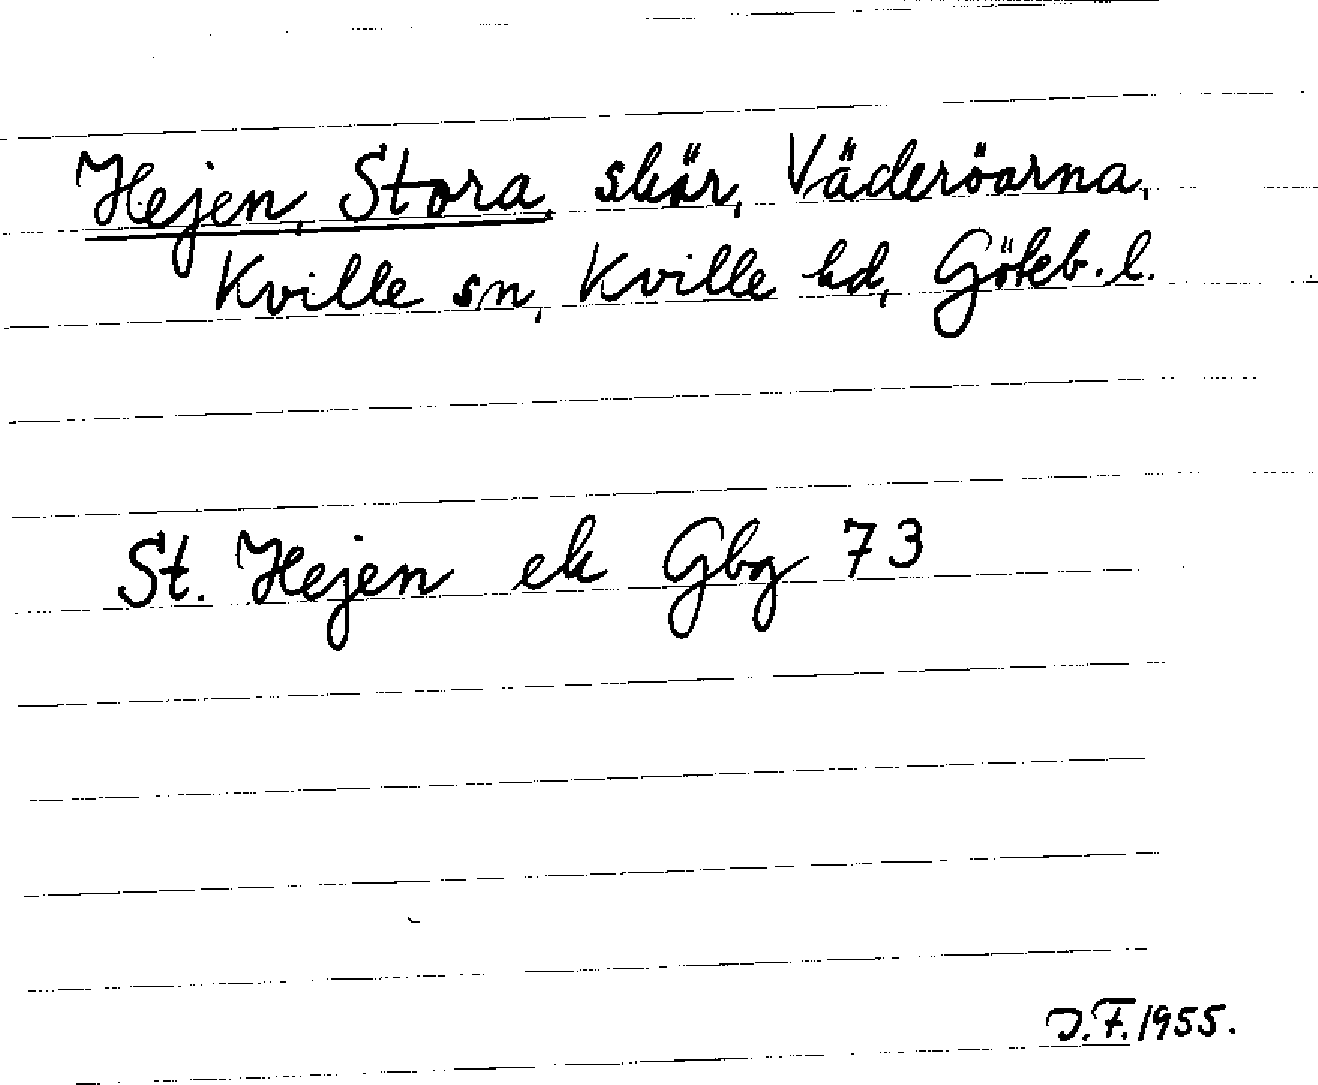 Hejen, Stora, skär, Väderöarna,
Kville sn, Kville hd, Göteb. l.
St. Hejen ek Gbg 73
J.F. 1955.